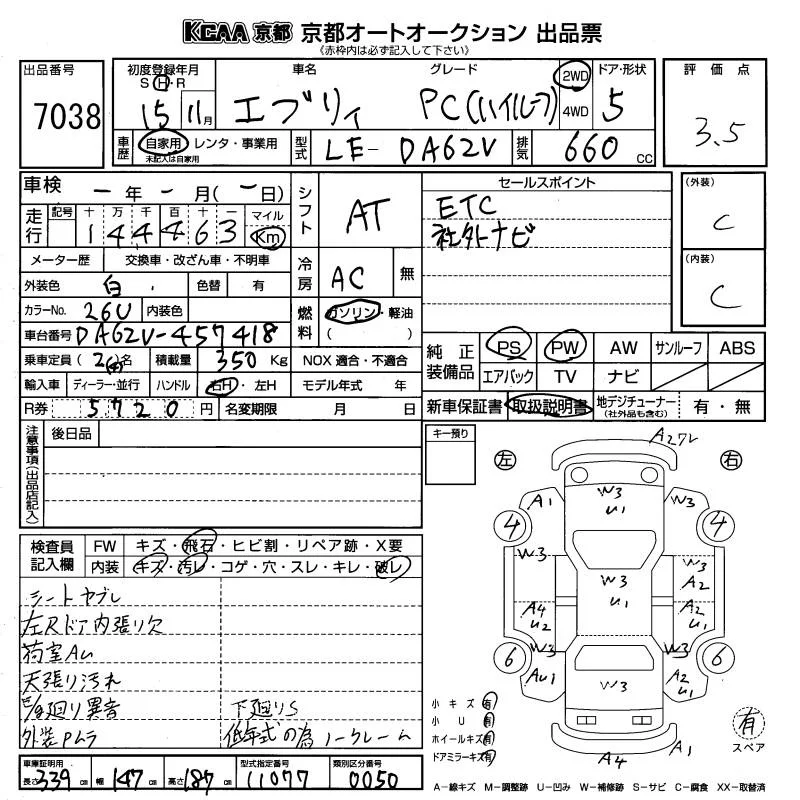 KCAA 京都 京都オートオークション 出品票
《赤枠内は必ず記入して下さい》
出品番号
7038
初度登録年月
S・H・R
15 11月
車名
エブリィ
グレード
PC(ハイルーフ)
2WD
4WD
ドア・形状
5
評価点
3.5
車歴
自家用・レンタ・事業用
未記入は自家用
型式
LE-DA62V
排気
660 CC
車検
ー年ー月(ー日)
走行
記号 十 万 千 百 十 一 マイル
144463 Km
シフト
AT
セールスポイント
ETC
社外ナビ
(外装)
C
(内装)
C
メーター歴 交換車・改ざん車・不明車
冷房
AC 無
外装色 白 色替 有
カラーNo. 26U 内装色
燃料
ガソリン・軽油
( )
車台番号 DA62V-457418
乗車定員 (2(4)名 積載量 350 Kg
NOX 適合・不適合
輸入車 ディーラー・並行 ハンドル 右H・左H
モデル年式 年
R券 5720円 名変期限 月 日
純正装備品
PS PW AW サンルーフ ABS
エアバック TV ナビ
新車保証書 取扱説明書 地デジチューナー(社外品も含む) 有・無
注意事項(出品店記入)
後日品
キー預り
左
右
A2ワレ
A1
W3
U1
W3
4
4
W3
W3
U1
W3
A2
A4
U2
A2
U1
6
6
W3
AU1
W3
W3
A2
U1
A4
A1
検査員記入欄
FW キズ・飛石・ヒビ割・リペア跡・X要
内装 キズ・汚レ・コゲ・穴・スレ・キレ・破レ
シートヤブレ
左Rドア内張り欠
荷室AU
天張り汚れ
E/g廻り異音 下廻りS
外装Pムラ 低年式の為ノークレーム
小キズ 有
小U 有
ホイールキズ 有
ドアミラーキズ 有
有
スペア
車庫証明用
長さ 339 cm 幅 147 cm 高さ 187 cm
型式指定番号
11077
類別区分番号
0050
A−線キズ M−調整跡 U−凹み W−補修跡 S−サビ C−腐食 XX−取替済